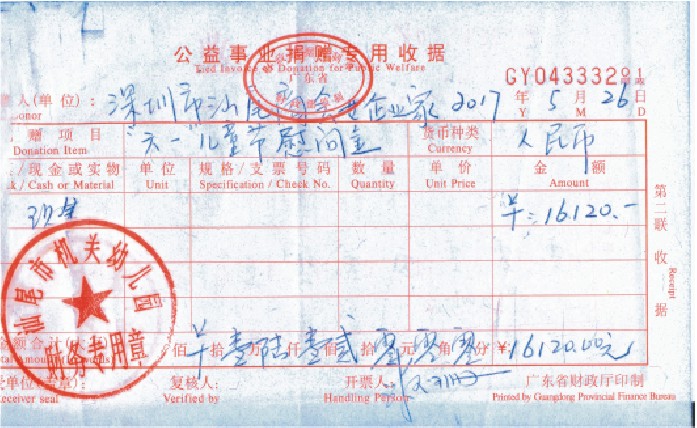 公益事业捐赠专用收据
Unified Invoice of Donation for Public Welfare
广东省
GY04333291
人(单位):深圳市汕尾商会企业家 2017年5月26日
onor Y M D
赠项目 "六一"儿童节慰问金 货币种类 人民币
Donation Item Currency
/现金或实物 单位 规格/支票号码 数量 单价 金额
/ Cash or Material Unit Specification / Check No. Quantity Unit Price Amount
现金 ¥:16120.-
第二联 收据
Receipt
汕尾市机关幼儿园
财务专用章
金额合计 佰 拾 万 仟 佰 拾 元 角 分 ¥16120.00元
壹 陆 壹 贰 零 零 零
复核人: 开票人: 广东省财政厅印制
eceiver seal Verified by Handling Person Printed by Guangdong Provincial Finance Bureau